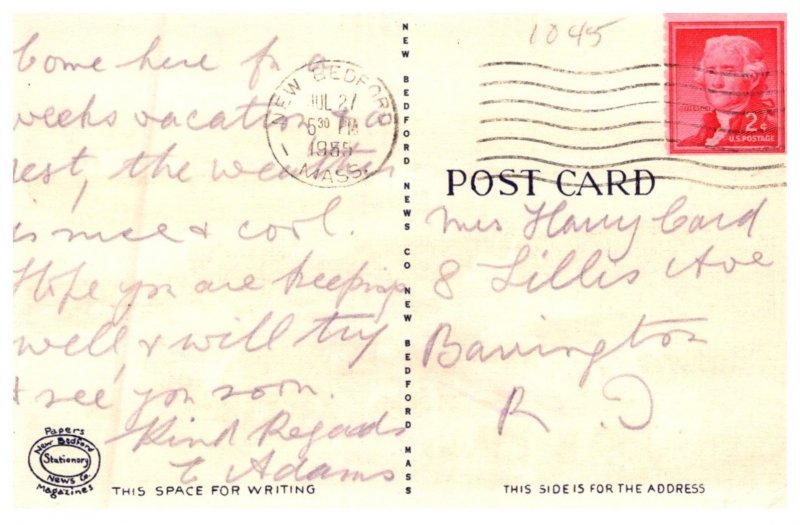 Come here for a
weeks vacation & a
rest, the weather
is nice & cool.
Hope you are keeping
well, & will try
& see you soon.
Kind Regads
E Adams
NEW BEDFORD
JUL 27
6 30 PM
1955
MASS.
NEW BEDFORD NEWS CO NEW BEDFORD MASS
1045
JEFFERSON
2¢
U.S. POSTAGE
POST CARD
Mrs Harry Card
8 Lillis Ave
Barrington
R I
Papers
New Bedford
Stationery
News Co.
Magazines
THIS SPACE FOR WRITING
THIS SIDE IS FOR THE ADDRESS